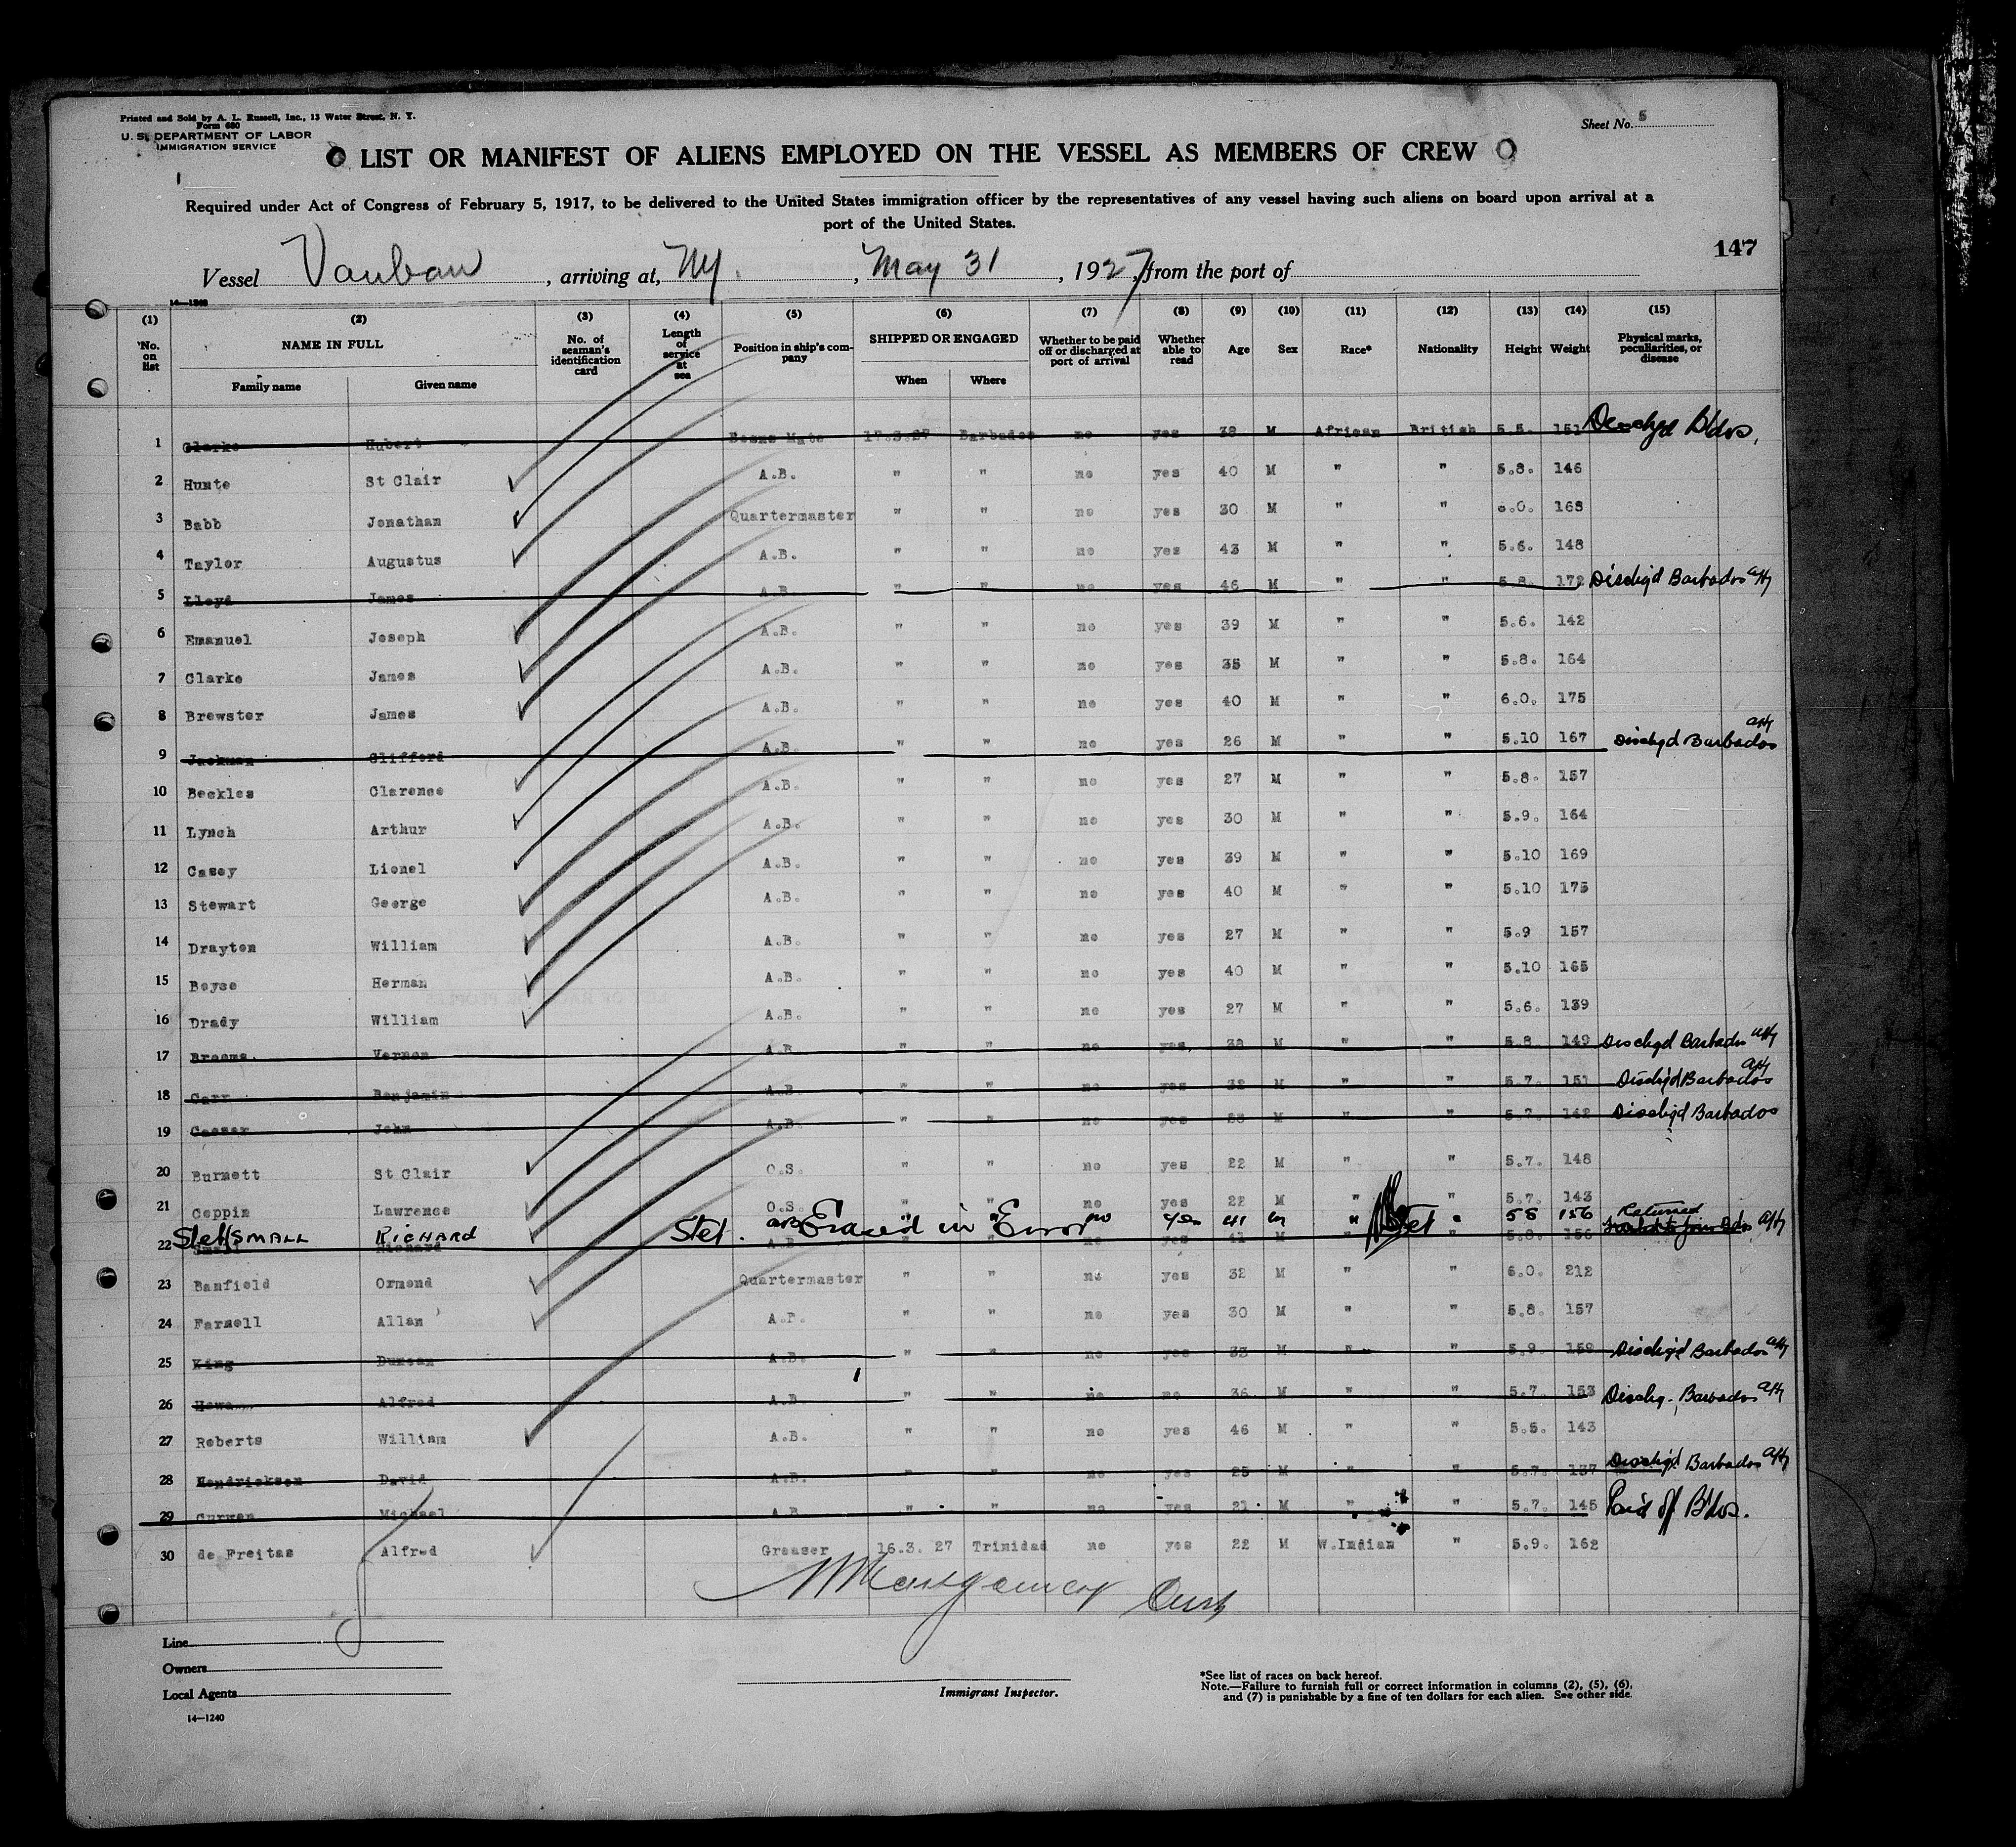 Printed and Sold by A. L. Russell, Inc., 13 Water Street, N. Y.
Form 680
U. S. DEPARTMENT OF LABOR
IMMIGRATION SERVICE
Sheet No. 5
LIST OR MANIFEST OF ALIENS EMPLOYED ON THE VESSEL AS MEMBERS OF CREW
Required under Act of Congress of February 5, 1917, to be delivered to the United States immigration officer by the representatives of any vessel having such aliens on board upon arrival at a
port of the United States.
147
Vessel Vauban, arriving at, NY., May 31, 1927, from the port of
(1) (2) (3) (4) (5) (6) (7) (8) (9) (10) (11) (12) (13) (14) (15)
No. on list NAME IN FULL No. of seaman's identification card Length of service at sea Position in ship's company SHIPPED OR ENGAGED Whether to be paid off or discharged at port of arrival Whether able to read Age Sex Race* Nationality Height Weight Physical marks, peculiarities, or disease
Family name Given name When Where
1 Clarke Hubert Bosns Mate 17.3.27 Barbados no yes 38 M African British 5.5. 151 Dischgd B'dos.
2 Hunte St Clair A.B. " " no yes 40 M " " 5.8. 146
3 Babb Jonathan Quartermaster " " no yes 30 M " " 6.0. 168
4 Taylor Augustus A.B. " " no yes 43 M " " 5.6. 148
5 Lloyd James A.B. " " no yes 46 M " " 5.8. 172 Dischgd Barbados
6 Emanuel Joseph A.B. " " no yes 39 M " " 5.6. 142
7 Clarke James A.B. " " no yes 35 M " " 5.8. 164
8 Brewster James A.B. " " no yes 40 M " " 6.0. 175
9 Jackman Clifford A.B. " " no yes 26 M " " 5.10 167 Dischgd Barbados
10 Beckles Clarence A.B. " " no yes 27 M " " 5.8. 157
11 Lynch Arthur A.B. " " no yes 30 M " " 5.9. 164
12 Casey Lionel A.B. " " no yes 39 M " " 5.10 169
13 Stewart George A.B. " " no yes 40 M " " 5.10 175
14 Drayton William A.B. " " no yes 27 M " " 5.9 157
15 Boyce Herman A.B. " " no yes 40 M " " 5.10 165
16 Drady William A.B. " " no yes 27 M " " 5.6. 139
17 Vernon A.B. " " no yes. 38 M " " 5.8. 149 Dischgd Barbados
18 Carr Benjamin A.B. " " no yes 32 M " " 5.7. 151 Dischgd Barbados
19 John A.B. " " no yes 28 M " " 5.7. 142 Dischgd Barbados
20 Burnett St Clair O.S. " " no yes 22 M " " 5.7. 148
21 Coppin Lawrence O.S. " " no yes 22 M " " 5.7. 143
Stet SMALL RICHARD Stet. AB Erased in Error no yes 41 M " Stet " 58 156 Returned
22 Small Richard A.B. " " no yes 41 M " " 5.8. 156
23 Banfield Ormond Quartermaster " " no yes 32 M " " 6.0. 212
24 Farnell Allan A.B. " " no yes 30 M " " 5.8. 157
25 King Duncan A.B. " " no yes 33 M " " 5.9. 159 Dischgd Barbados
26 Alfred A.B. " " no no 36 M " " 5.7. 153 Dischg. Barbados
27 Roberts William A.B. " " no yes 46 M " " 5.5. 143
28 Hendrickson David A.B. " " no yes 25 M " " 5.7. 137 Dischgd Barbados
29 Curwen Michael A.B. " " no yes 21 M " " 5.7. 145 Paid off B'dos.
30 de Freitas Alfred Greaser 16.3. 27 Trinidad no yes 22 M W.Indian " 5.9. 162
Montgomery
Line
Owners
Local Agents
14—1240
Immigrant Inspector.
*See list of races on back hereof.
Note.—Failure to furnish full or correct information in columns (2), (5), (6),
and (7) is punishable by a fine of ten dollars for each alien. See other side.